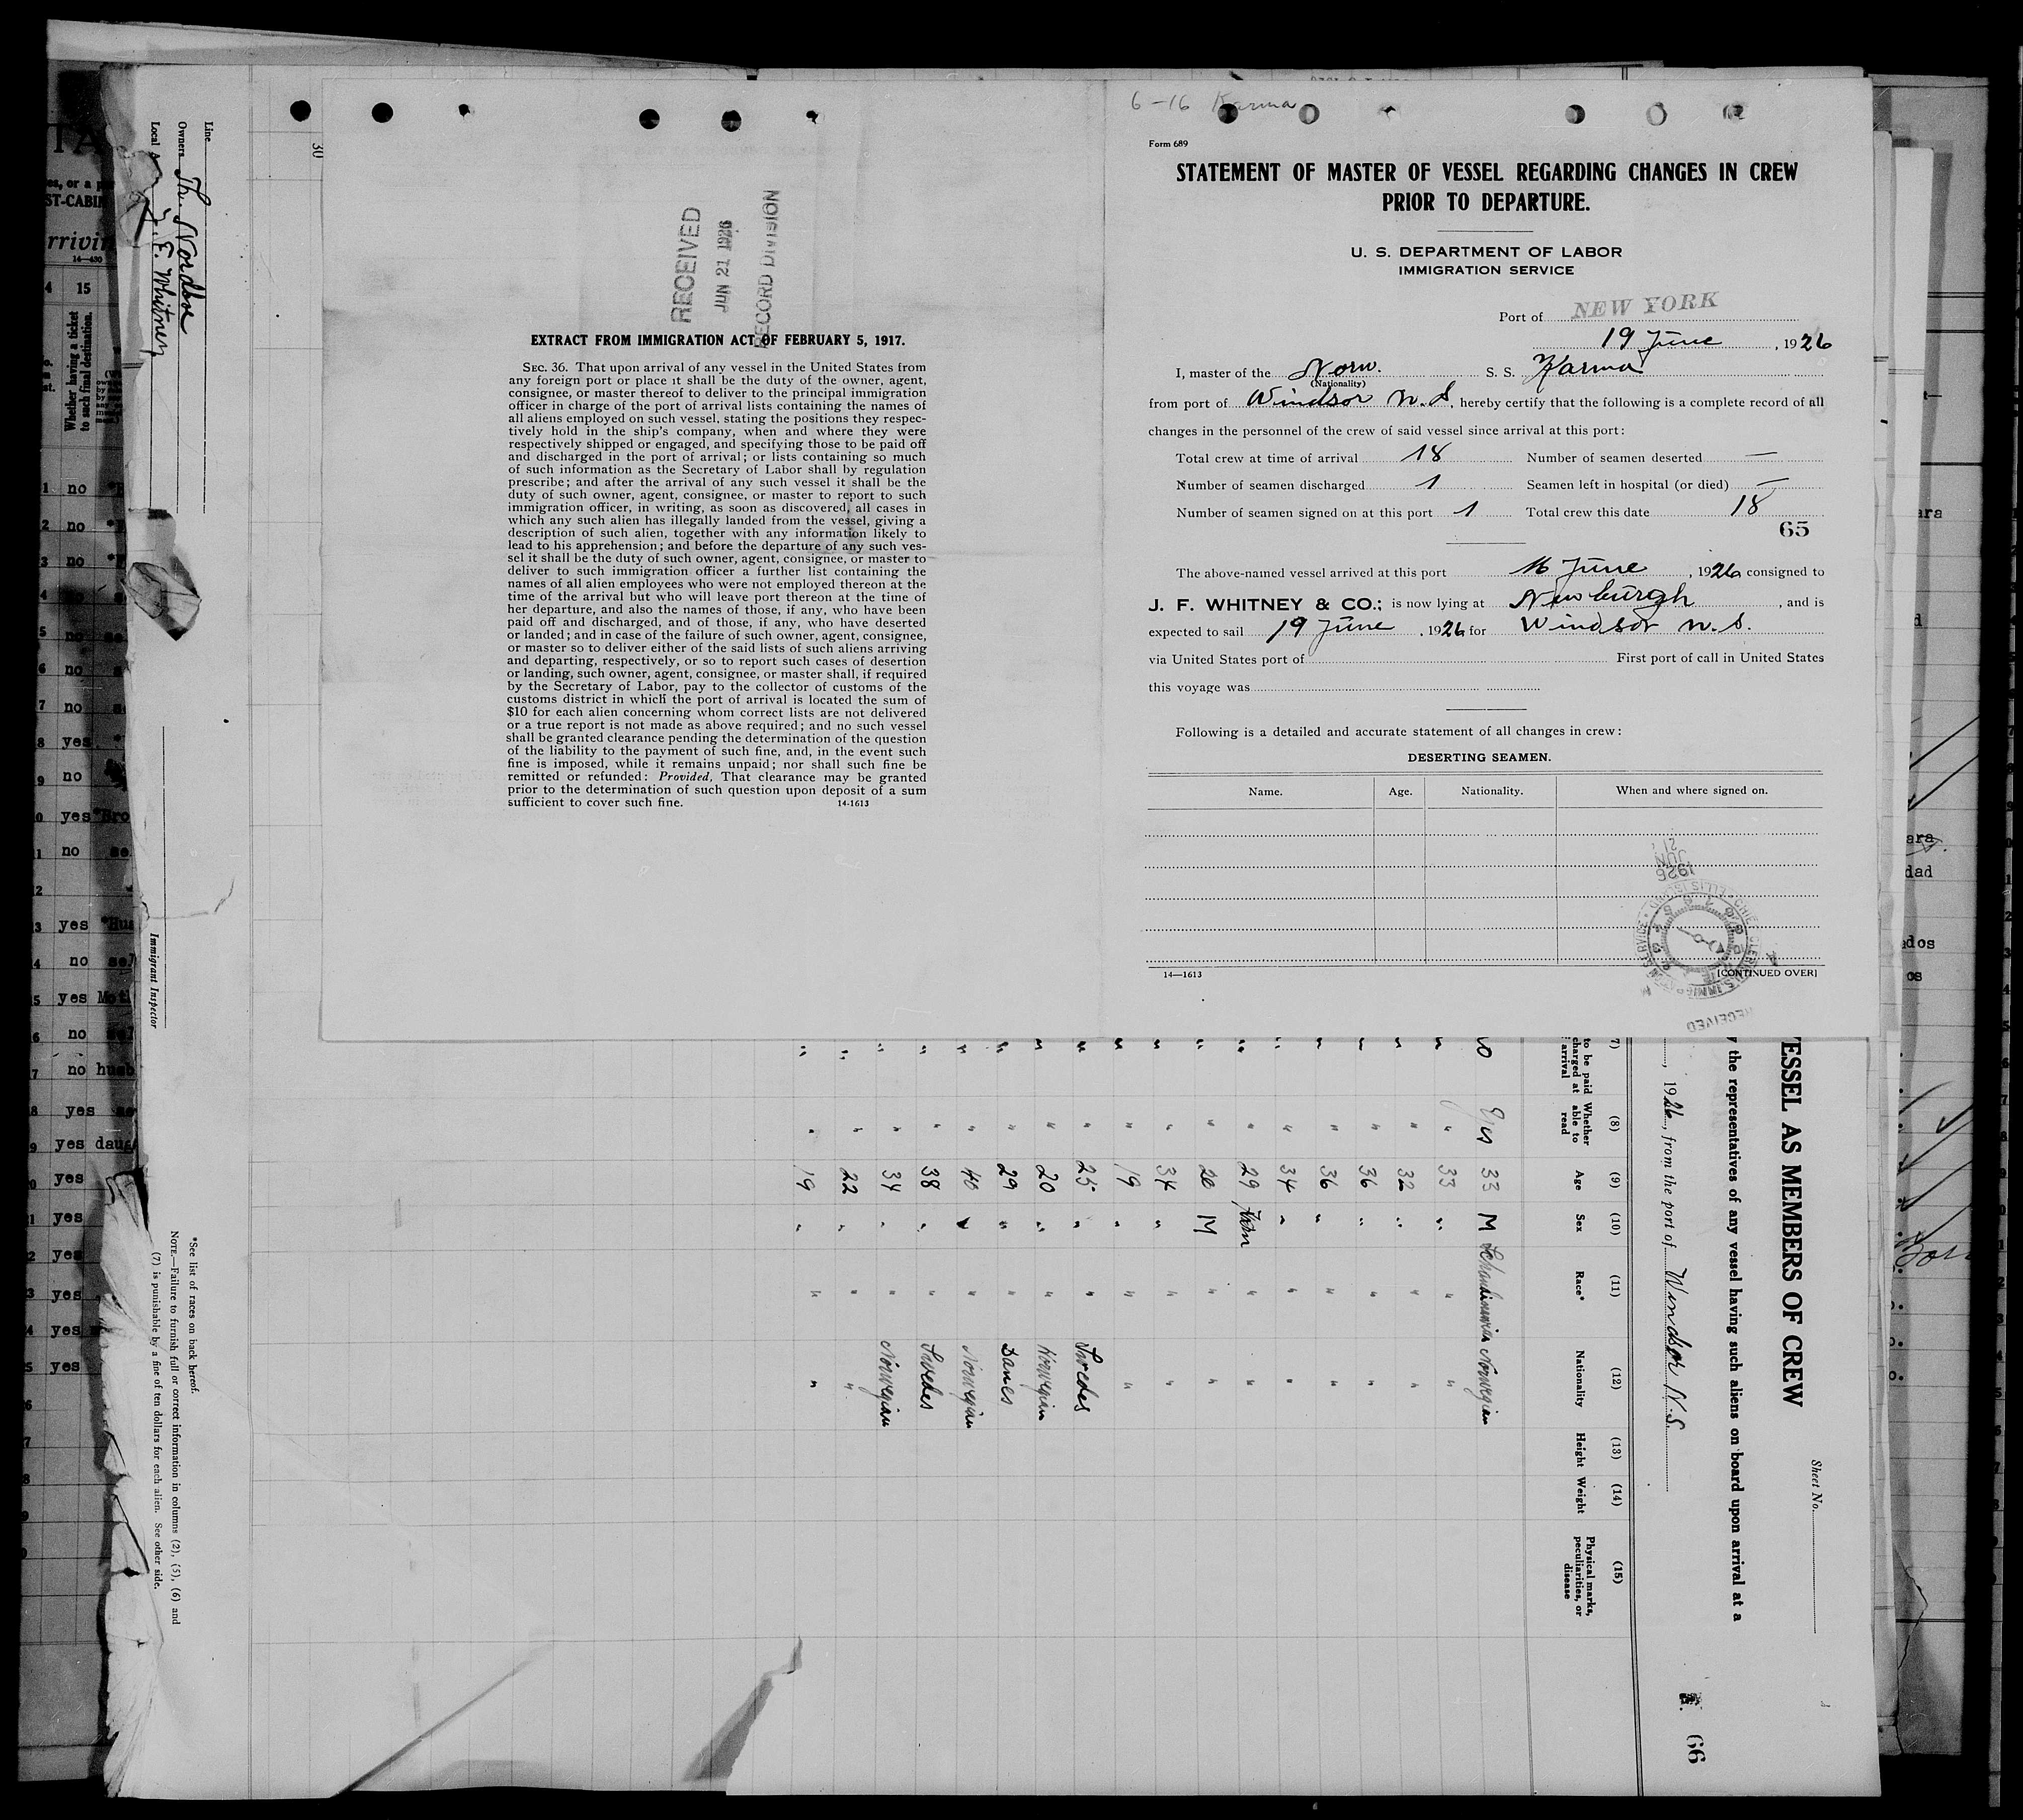 6-16 Karma
Form 689
STATEMENT OF MASTER OF VESSEL REGARDING CHANGES IN CREW
PRIOR TO DEPARTURE.
U. S. DEPARTMENT OF LABOR
IMMIGRATION SERVICE
Port of NEW YORK
19 June, 1926
I, master of the Norw. S. S. Karma
(Nationality)
from port of Windsor N.S., hereby certify that the following is a complete record of all
changes in the personnel of the crew of said vessel since arrival at this port:
Total crew at time of arrival 18 Number of seamen deserted —
Number of seamen discharged 1 Seamen left in hospital (or died) —
Number of seamen signed on at this port 1 Total crew this date 18
65
The above-named vessel arrived at this port 16 June, 1926 consigned to
J. F. WHITNEY & CO.; is now lying at Newburgh, and is
expected to sail 19 June, 1926 for Windsor N.S.
via United States port of First port of call in United States
this voyage was
Following is a detailed and accurate statement of all changes in crew:
DESERTING SEAMEN.
Name. Age. Nationality. When and where signed on.
14—1613 [CONTINUED OVER]
1926
JUN
21
RECEIVED
RECEIVED
JUN 21 1926
RECORD DIVISION
EXTRACT FROM IMMIGRATION ACT OF FEBRUARY 5, 1917.
SEC. 36. That upon arrival of any vessel in the United States from
any foreign port or place it shall be the duty of the owner, agent,
consignee, or master thereof to deliver to the principal immigration
officer in charge of the port of arrival lists containing the names of
all aliens employed on such vessel, stating the positions they respec-
tively hold in the ship's company, when and where they were
respectively shipped or engaged, and specifying those to be paid off
and discharged in the port of arrival; or lists containing so much
of such information as the Secretary of Labor shall by regulation
prescribe; and after the arrival of any such vessel it shall be the
duty of such owner, agent, consignee, or master to report to such
immigration officer, in writing, as soon as discovered, all cases in
which any such alien has illegally landed from the vessel, giving a
description of such alien, together with any information likely to
lead to his apprehension; and before the departure of any such ves-
sel it shall be the duty of such owner, agent, consignee, or master to
deliver to such immigration officer a further list containing the
names of all alien employees who were not employed thereon at the
time of the arrival but who will leave port thereon at the time of
her departure, and also the names of those, if any, who have been
paid off and discharged, and of those, if any, who have deserted
or landed; and in case of the failure of such owner, agent, consignee,
or master so to deliver either of the said lists of such aliens arriving
and departing, respectively, or so to report such cases of desertion
or landing, such owner, agent, consignee, or master shall, if required
by the Secretary of Labor, pay to the collector of customs of the
customs district in which the port of arrival is located the sum of
$10 for each alien concerning whom correct lists are not delivered
or a true report is not made as above required; and no such vessel
shall be granted clearance pending the determination of the question
of the liability to the payment of such fine, and, in the event such
fine is imposed, while it remains unpaid; nor shall such fine be
remitted or refunded: Provided, That clearance may be granted
prior to the determination of such question upon deposit of a sum
sufficient to cover such fine. 14-1613
Sheet No.
ESSEL AS MEMBERS OF CREW
the representatives of any vessel having such aliens on board upon arrival at a
, 1926, from the port of Windsor N.S.
66
(8) (9) (10) (11) (12) (13) (14) (15)
Whether able to read Age Sex Race* Nationality Height Weight Physical marks, peculiarities, or disease
Yes 33 M Norwegian
" " 33 " " "
" " 32 " " "
" " 36 " " "
" " 36 " " "
" " 34 " " "
" " 29 " "
" " 20 M " "
" " 34 " " "
" " 19 " " "
" " 25 " " Swedes
" " 20 " " Norwegian
" " 29 " " Danes
" " 40 " " Norwegian
" " 38 " " Swedes
" " 34 " " Norwegian
" " 22 " " "
" " 19 " " "
30
Line
Owners
Local J. F. Whitney
Immigrant Inspector
*See list of races on back hereof.
NOTE.—Failure to furnish full or correct information in columns (2), (5), (6) and
(7) is punishable by a fine of ten dollars for each alien. See other side.